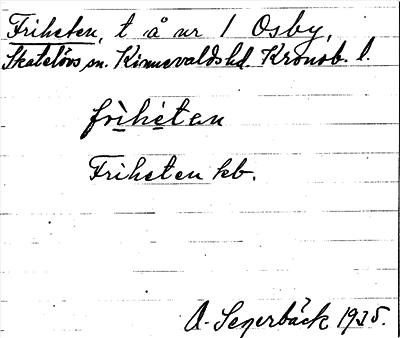 Friheten, t å nr 1 Osby,
Skatelövs sn. Kinnevalds hd. Kronob. l.
frihetan
Friheten kb.
A. Segerbäck 1935.